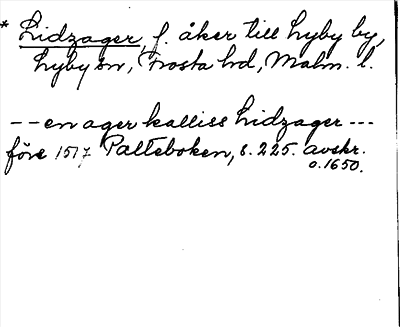 * Lidzager, f. åker till Lyby by,
Lyby sn, Frosta hd, Malm. l.
-- en ager kalliss Lidzager ---
före 1517 Palteboken, s. 225. avskr.
o. 1650.